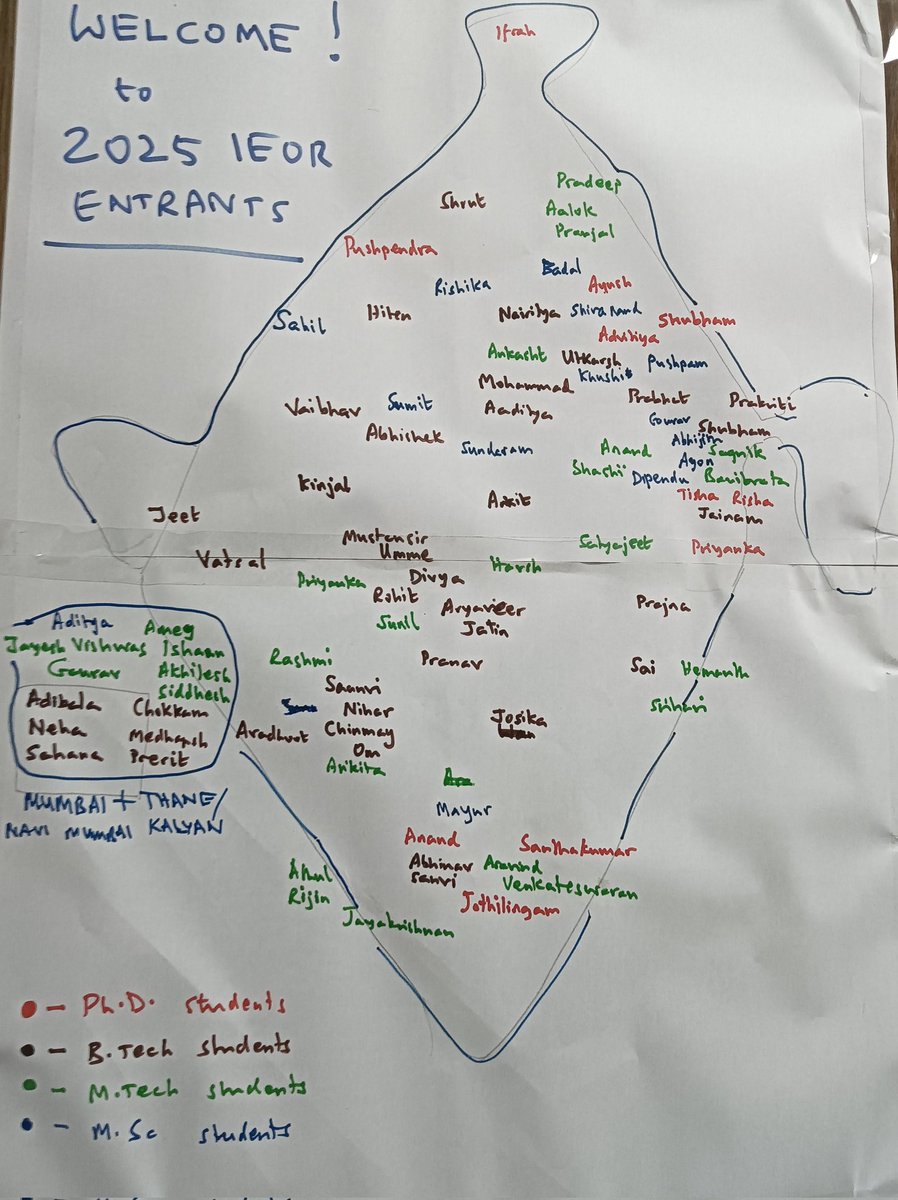 WELCOME !
to
2025 IEOR
ENTRANTS
Ifrah
Pradeep
Shrut
Aalok
Pranjal
Pushpendra
Badal
Rishika
Ayush
Sahil
Hiten
Nairitya
Shivanand
Shubham
Advitiya
Ankasht
Utkarsh
Pushpam
Khushi
Mohammad
Prabhat
Prakriti
Vaibhav
Sumit
Aaditya
Gourav
Shubham
Abhishek
Abhijim
Sundaram
Anand
Sagnik
Shashi
Ayon
Dipendu
Banibrata
Kinjal
Ankit
Tisha Risha
Jeet
Jainam
Mustensir
Satyajeet
Priyanka
Vatsal
Umme
Harsh
Priyanka
Divya
Rohit
Aryaveer
Prajna
Sunil
Jatin
Rashmi
Pranav
Sai
Hemanth
Saanvi
Srihari
Nihar
Josika
Aradhoot
Chinmay
Om
Ankita
Mayur
Anand
Santhakumar
Abhinav
Aravind
Sanvi
Venkateswaran
Jothilingam
Rijin
Jayakrishnan
Aditya
Ameg
Jayesh Vishwas Ishaan
Gaurav
Akhilesh
Siddhesh
Adibala
Chokkam
Neha
Medhansh
Sahana
Prerit
MUMBAI + THANE/
NAVI MUMBAI KALYAN
- Ph.D. students
- B.Tech students
- M.Tech students
- M.Sc students